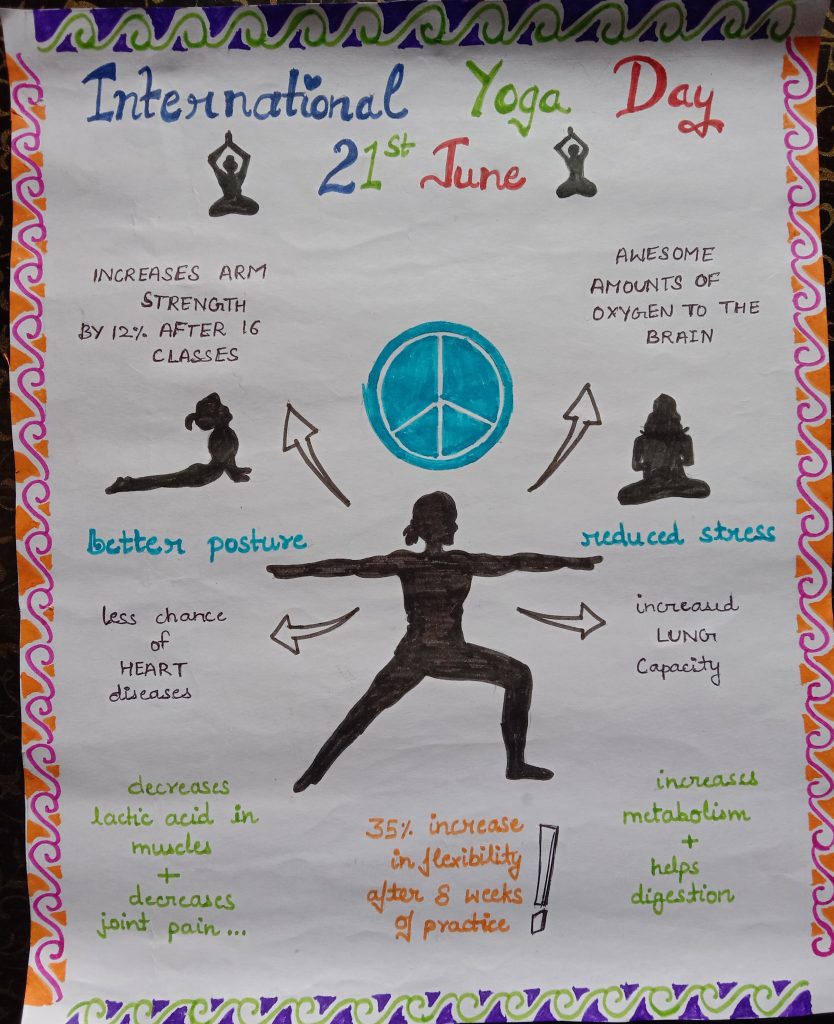 International Yoga Day
21st June
INCREASES ARM
STRENGTH
BY 12% AFTER 16
CLASSES
AWESOME
AMOUNTS OF
OXYGEN TO THE
BRAIN
better posture
reduced stress
less chance
of
HEART
diseases
increased
LUNG
Capacity
decreases
lactic acid in
muscles
+
decreases
joint pain...
35% increase
in flexibility
after 8 weeks
of practice
!
increases
metabolism
+
helps
digestion